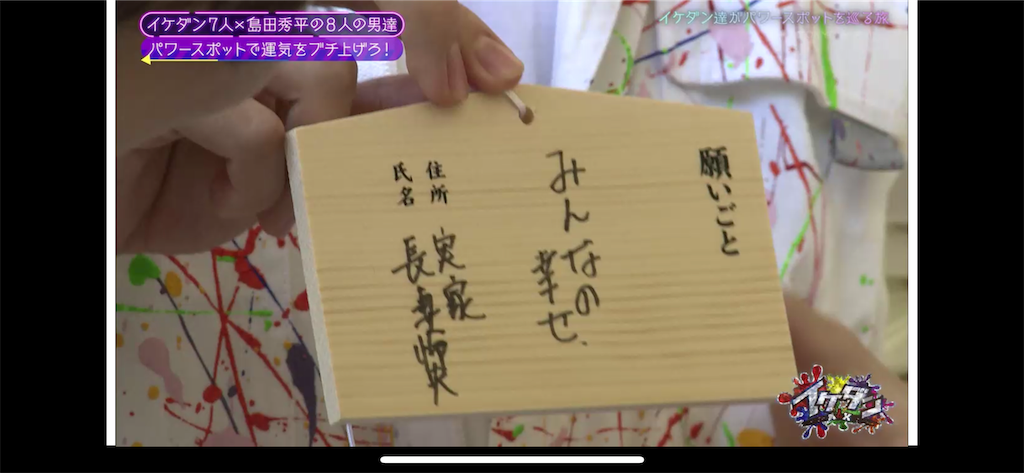 イケダン7人×島田秀平の8人の男達
パワースポットで運気をブチ上げろ!
イケダン達がパワースポットを巡る旅
願いごと
みんなの
幸せ、
住所
実家
氏名
長妻怜央
イケダン